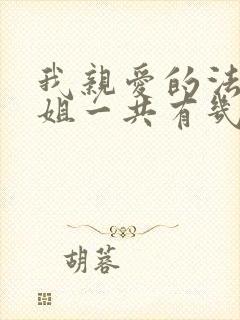 我親愛的法
姐一共有幾
胡蓉